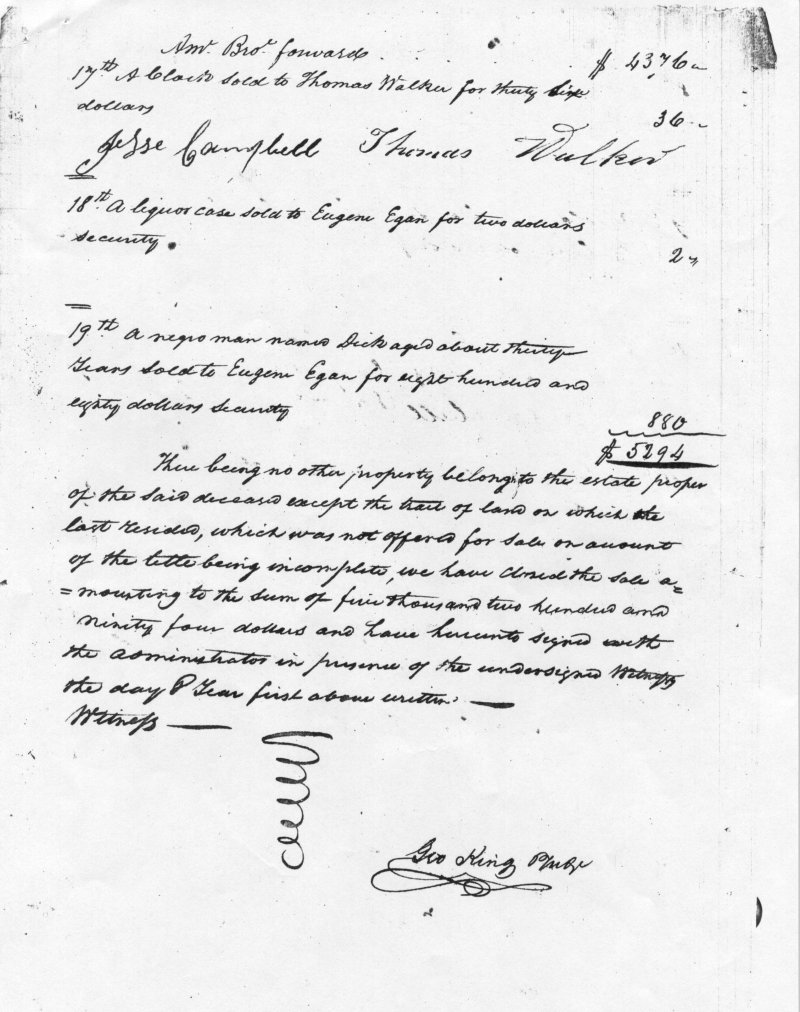 Amt. Bro.t forward $ 4376
17th A Clock sold to Thomas Walker for thirty six
dollars 36
Jesse Campbell Thomas Walker
18th A liquor case sold to Eugene Egan for two dollars
security 2
19th A negro man named Dick aged about thirty
Years sold to Eugene Egan for eight hundred and
eighty dollars security 880
$ 5294
There being no other property belong to the estate proper
of the said deceased except the tract of land on which the
last resided, which was not offered for sale on account
of the tittle being incomplete, we have closed the sale a=
=mounting to the sum of five thousand two hundred and
ninity four dollars and have hereunto signed with
the administrator in presence of the undersigned Witness
the day & Year first above written
Witness
Geo King